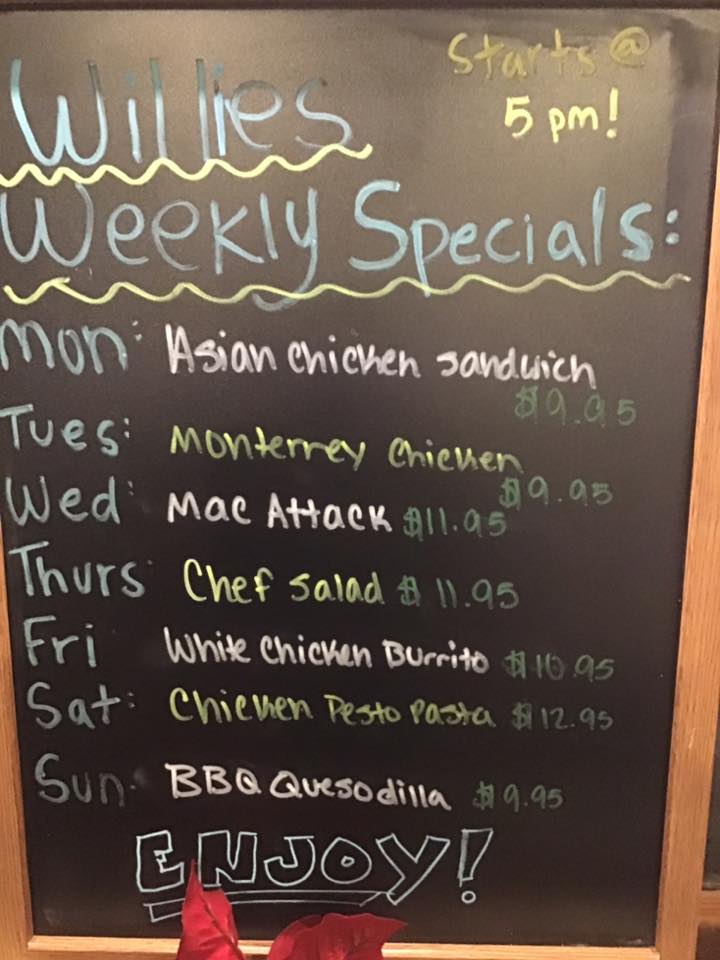 Starts @
5 pm!
Willies
Weekly Specials:
Mon: Asian chicken sandwich
$9.95
Tues: Monterrey Chicken
$9.95
Wed: Mac Attack $11.95
Thurs: Chef Salad $11.95
Fri White Chicken Burrito $10.95
Sat: Chicken Pesto Pasta $12.95
Sun: BBQ Quesodilla $9.95
ENJOY!